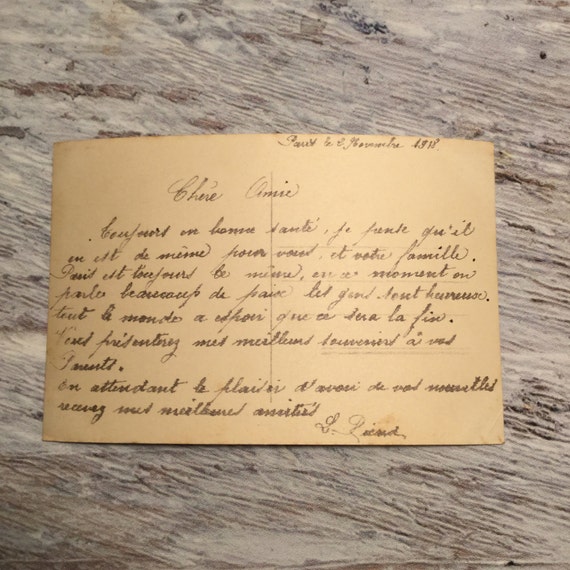 Paris le 2 Novembre 1918.
Chère Amie
Toujours en bonne santé, je pense qu'il
en est de même pour vous, et votre famille.
Paris est toujours le même, en ce moment on
parle beaucoup de paix les gens sont heureux.
tout le monde a espoir que ce sera la fin.
Vous présenterez mes meilleurs souvenirs à vos
Parents.
En attendant le plaisir d'avoir de vos nouvelles
recevez mes meilleures amitiés
L.